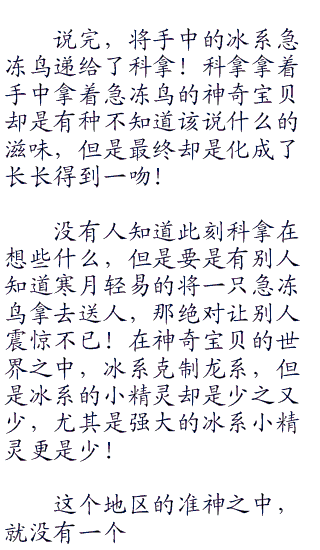 说完，将手中的冰系急
冻鸟递给了科拿！科拿拿着
手中拿着急冻鸟的神奇宝贝
却是有种不知道该说什么的
滋味，但是最终却是化成了
长长得到一吻！
没有人知道此刻科拿在
想些什么，但是要是有别人
知道寒月轻易的将一只急冻
鸟拿去送人，那绝对让别人
震惊不已！在神奇宝贝的世
界之中，冰系克制龙系，但
是冰系的小精灵却是少之又
少，尤其是强大的冰系小精
灵更是少！
这个地区的准神之中，
就没有一个